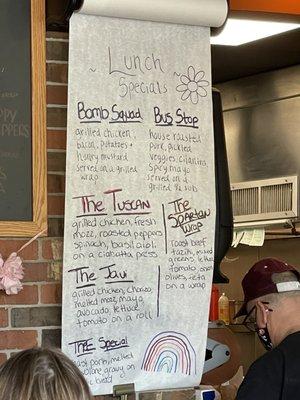 Lunch
Specials
Bomb Squad
grilled chicken,
bacon, potatoes +
honey mustard
served on a grilled
wrap
Bus Stop
house roasted
pork, pickled
veggies, cilantro
spicy mayo
served on a
grilled 1/2 sub
The Tuscan
grilled chicken, fresh
mozz, roasted peppers
spinach, basil aioli
on a ciabatta press
The Spartan
Wrap
roast beef
greens,
tomato, onion
olives, feta
on a wrap
The Jav
grilled chicken,
melted mozz, mayo
avocado, lettuce
tomato on a roll
The Special
melted
gravy on
bread